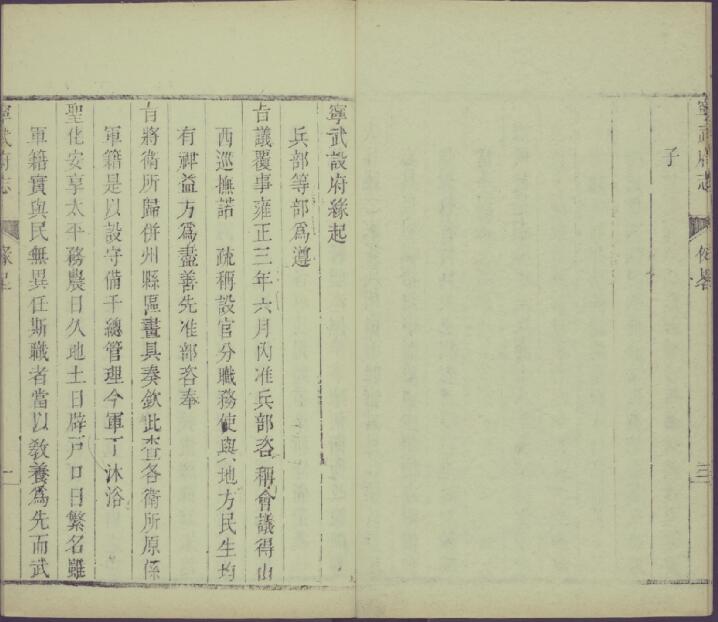 寧武府志
子
三
寧武設府緣起
兵部等部爲遵
旨議覆事雍正三年六月內准兵部咨稱會議得山
西巡撫諾 疏稱設官分職務使與地方民生均
有裨益方爲盡善先准部咨奉
旨將衛所歸併州縣區畫具奏欽此查各衛所原係
軍籍是以設守備千總管理今軍丁沐浴
聖化安享太平務農日久地土日辟戸口日繁名雖
軍籍實與民無異任斯職者當以教養爲先而武
寧武府志
緣起
一